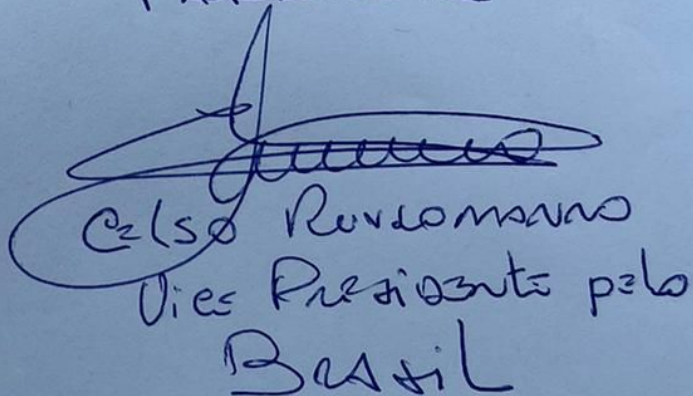 Celso Russomanno
Vice Presidente pelo
Brasil